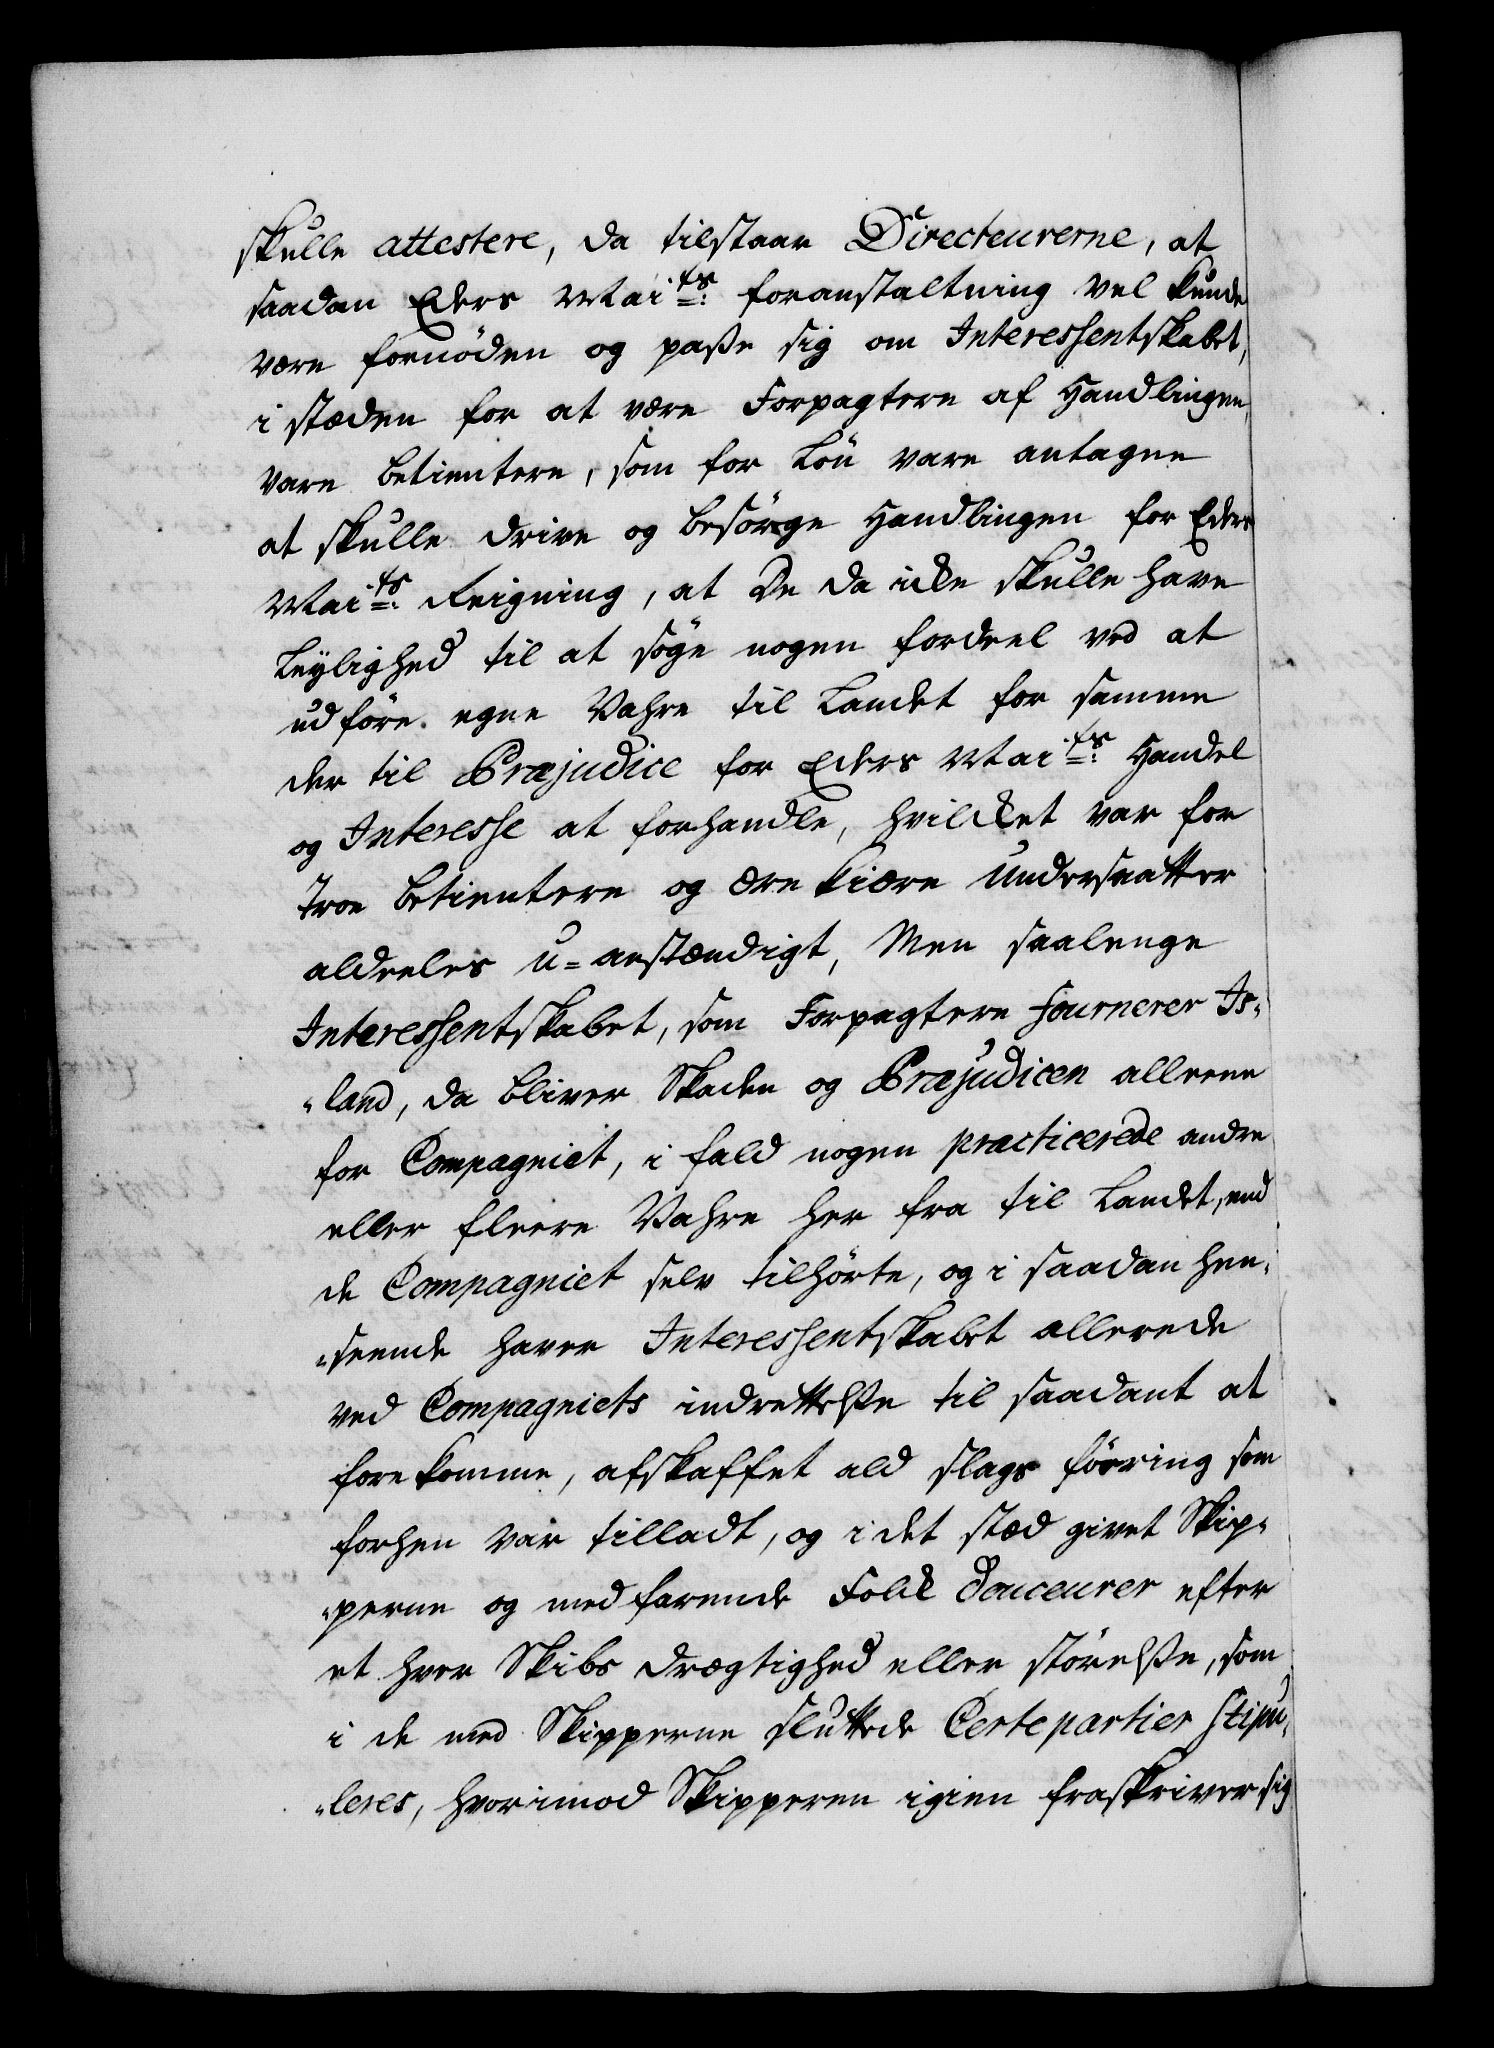 skulle attestere, da tilstaar Directeurerne, at
saadan Eders Mai<sup>ts</sup>: foranstaltning vel kunde
være fornöden og passe sig om Interessentskabet,
i stæden for at være Forpagtere af Handlingen,
vare betientere, som for Lön vare antagne
at skulle drive og besörge Handlingen for Eders
Mai<sup>ts</sup>: Reigning, at De da icke skulle have
Leylighed til at söge nogen fordeel ved at
udföre egne Vahre til Landet for samme
der til Præjudice for Eders Mai<sup>ts</sup>: Handel
og Interesse at forhandle, hvilcket var for
Troe betientere og ærekiære Undersaatter
aldeeles u-anstændigt, Men saalenge
Interessentskabet, som Forpagtere fournerer Is-
-land, da bliver Skaden og Præjudicen alleene
for Compagniet, i fald nogen practicerede andre
eller fleere Vahre her fra til Landet, end
de Compagniet selv tilhörte, og i saadan hen-
-seende haver Interessentskabet allerede
ved Compagniets indrettelse til saadant at
forekomme, afskaffet ald slags föring som
forhen var tilladt, og i det stæd givet Skip-
-perne og medfarende Folck douceurer efter
et hver Skibs drægtighed eller störelse, som
i de med Skipperne sluttede Certepartier stipu-
-leres, hvorimod Skipperen igien fraskriver sig